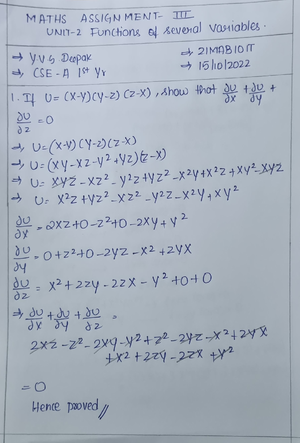 MATHS ASSIGNMENT - III
UNIT-2 Functions of several variables.
→ Y.V.S Deepak → 21MAB101T
→ CSE-A 1st Yr → 15/10/2022
1. If U = (x-y)(y-z)(z-x), show that ∂U/∂x + ∂U/∂y +
∂U/∂z = 0
→ U = (x-y)(y-z)(z-x)
→ U = (xy - xz - y² + yz)(z-x)
→ U = xyz - xz² - y²z + yz² - x²y + x²z + xy² - xyz
→ U = x²z + yz² - xz² - y²z - x²y + xy²
∂U/∂x = 2xz + 0 - z² + 0 - 2xy + y²
∂U/∂y = 0 + z² + 0 - 2yz - x² + 2yx
∂U/∂z = x² + 2zy - 2zx - y² + 0 + 0
⇒ ∂U/∂x + ∂U/∂y + ∂U/∂z =
2xz - z² - 2xy - y² + z² - 2yz - x² + 2yx
+ x² + 2zy - 2zx + y²
= 0
Hence proved //